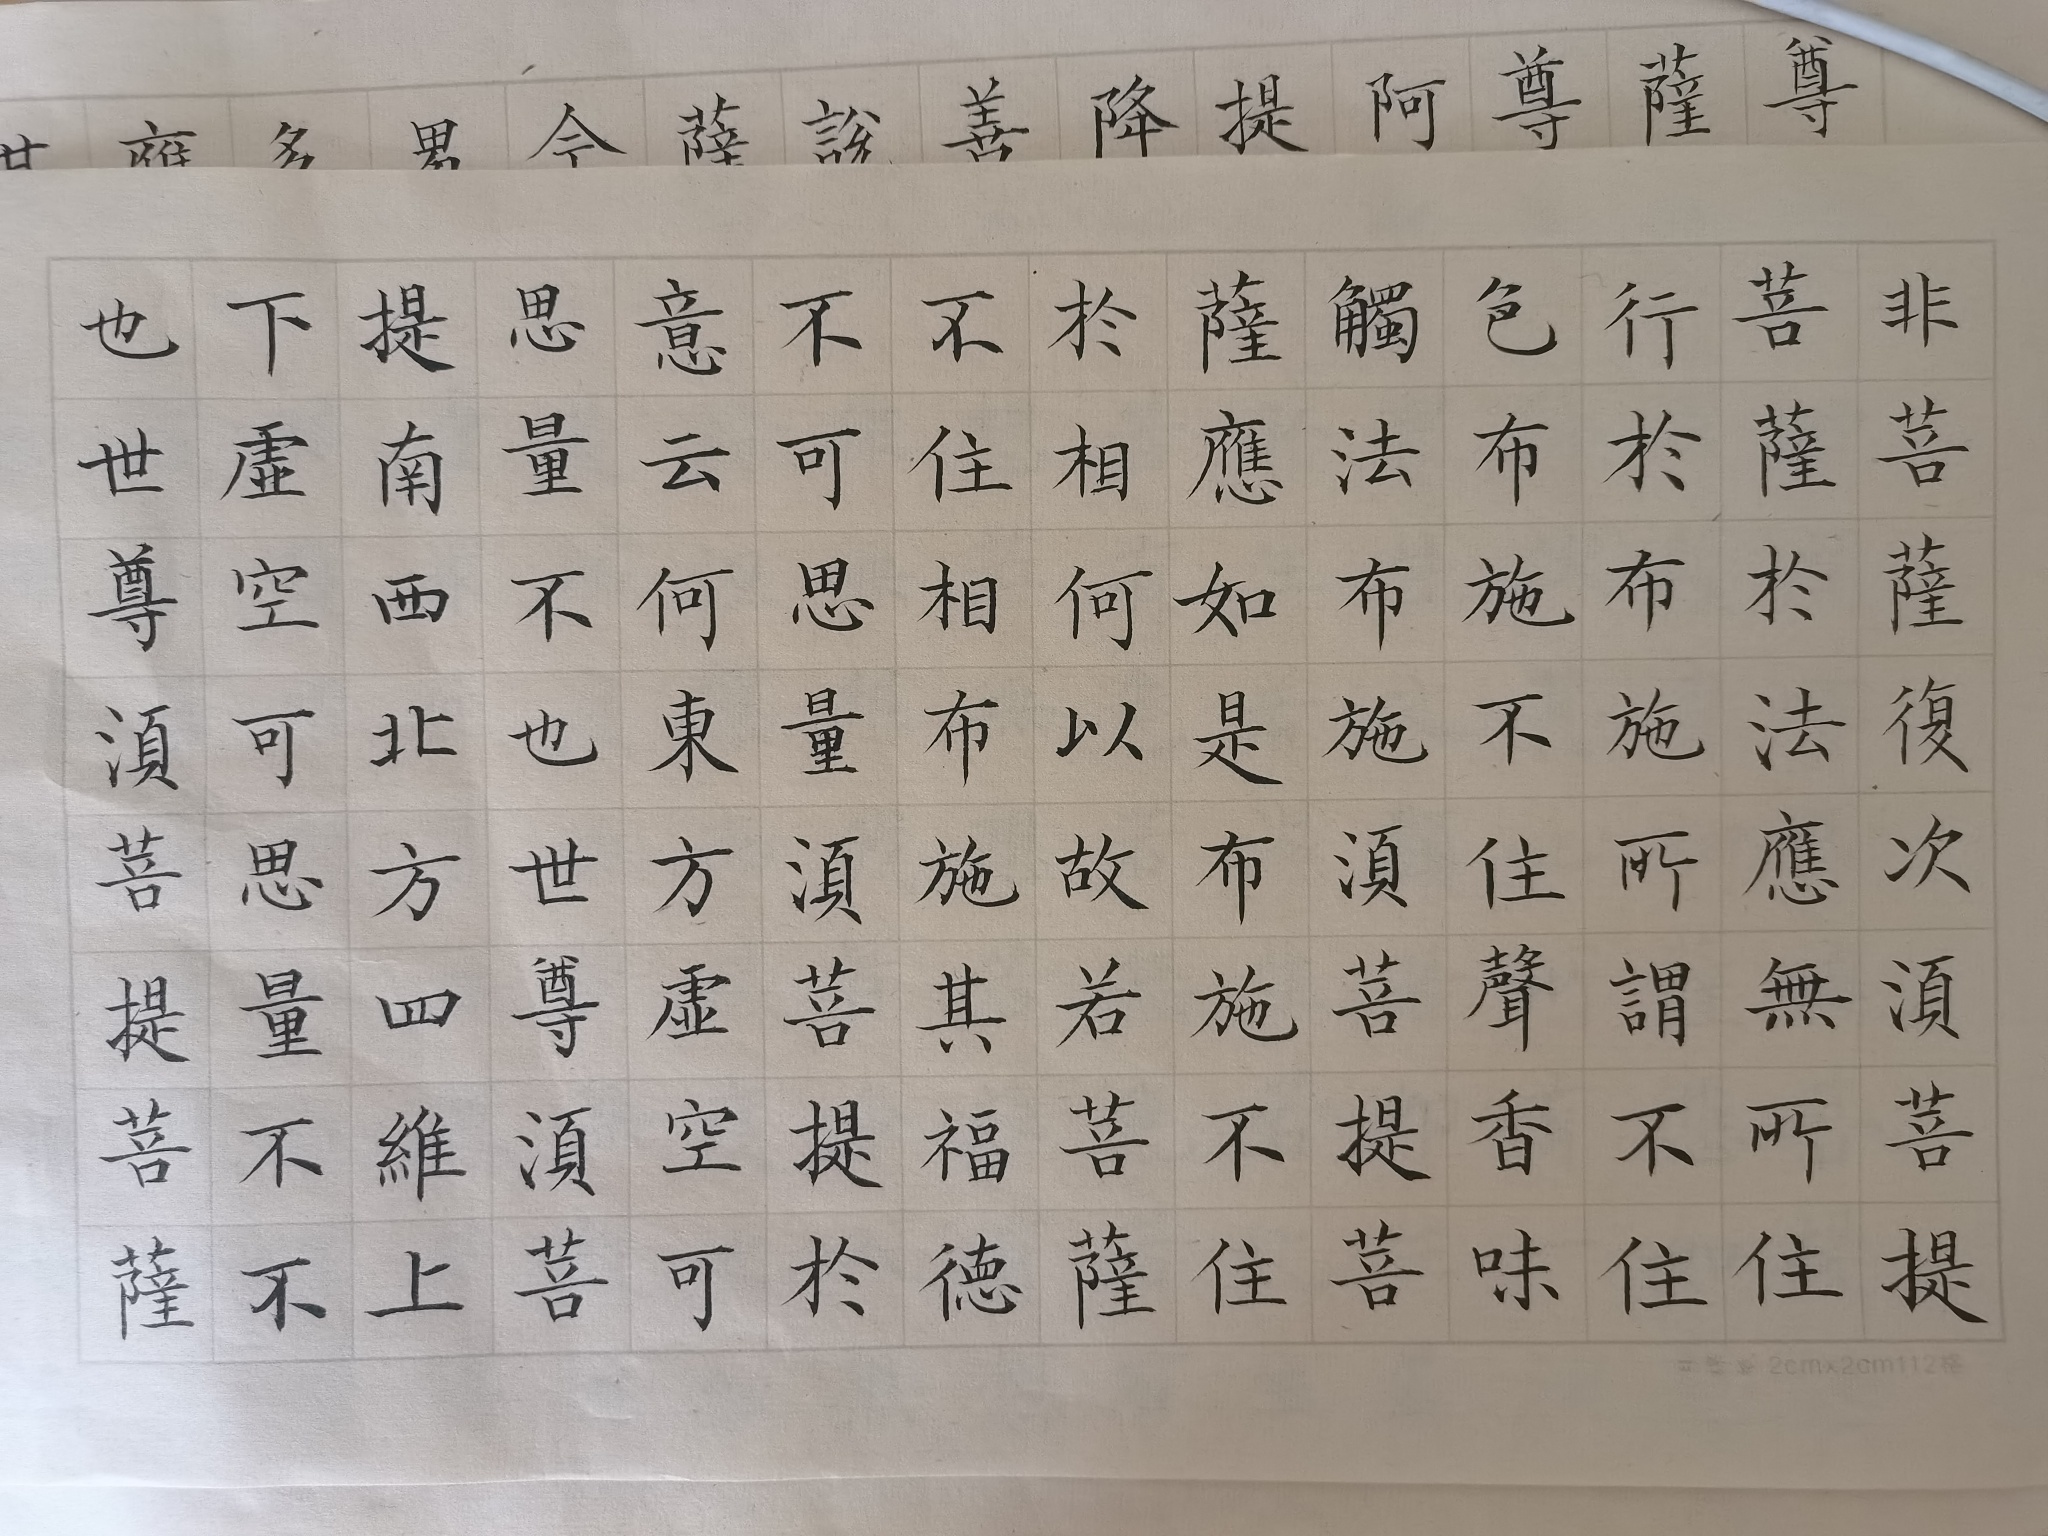 尊
薩
尊
阿
提
降
善
說
薩
今
非菩薩復次湏菩提
菩薩於法應無所住
行於布施所謂不住
色布施不住聲香味
觸法布施湏菩提菩
薩應如是布施不住
於相何以故若菩薩
不住相布施其福德
不可思量湏菩提於
意云何東方虛空可
思量不也世尊湏菩
提南西北方四維上
下虛空可思量不不
也世尊湏菩提菩薩
2cmx2cm112格